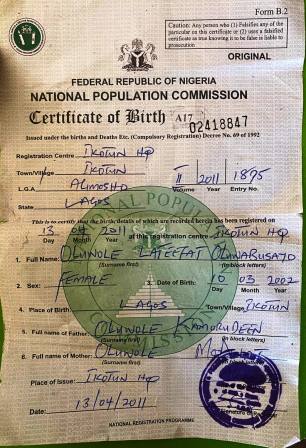 Form B.2
Caution: Any person who (1) Falsifies any of the
particular on this certificate or (2) uses a falsified
certificate as true knowing it to be false is liable to
prosecution
ORIGINAL
FEDERAL REPUBLIC OF NIGERIA
NATIONAL POPULATION COMMISSION
Certificate of Birth A17 02418847
Issued under the births and Deaths Etc. (Compulsory Registration) Decree No. 69 of 1992
Registration Centre IKOTUN HQ
Town/Village IKOTUN II 2011 1875
L.G.A ALIMOSHO Volume Year Entry No.
State LAGOS
This is to certify that the birth, details of which are recorded herein has been registered on
13 04 2011 at this registration centre IKOTUN HQ
Day Month Year
1. Full Name: OLUWOLE LATEEFAT
(Surname first) (In block letters)
2. Sex: FEMALE 3. Date of Birth: 10 03 2002
Day Month Year
4. Place of Birth LAGOS Town/Village IKOTUN
5. Full name of Father: OLUWOLE KAMORUDEEN
(Surname first) (In block letters)
6. Full name of Mother: OLUWOLE
(Surname first) (In block letters)
Place of Issue: IKOTUN HQ
Date: 13/04/2011
NATIONAL REGISTRATION PROGRAMME